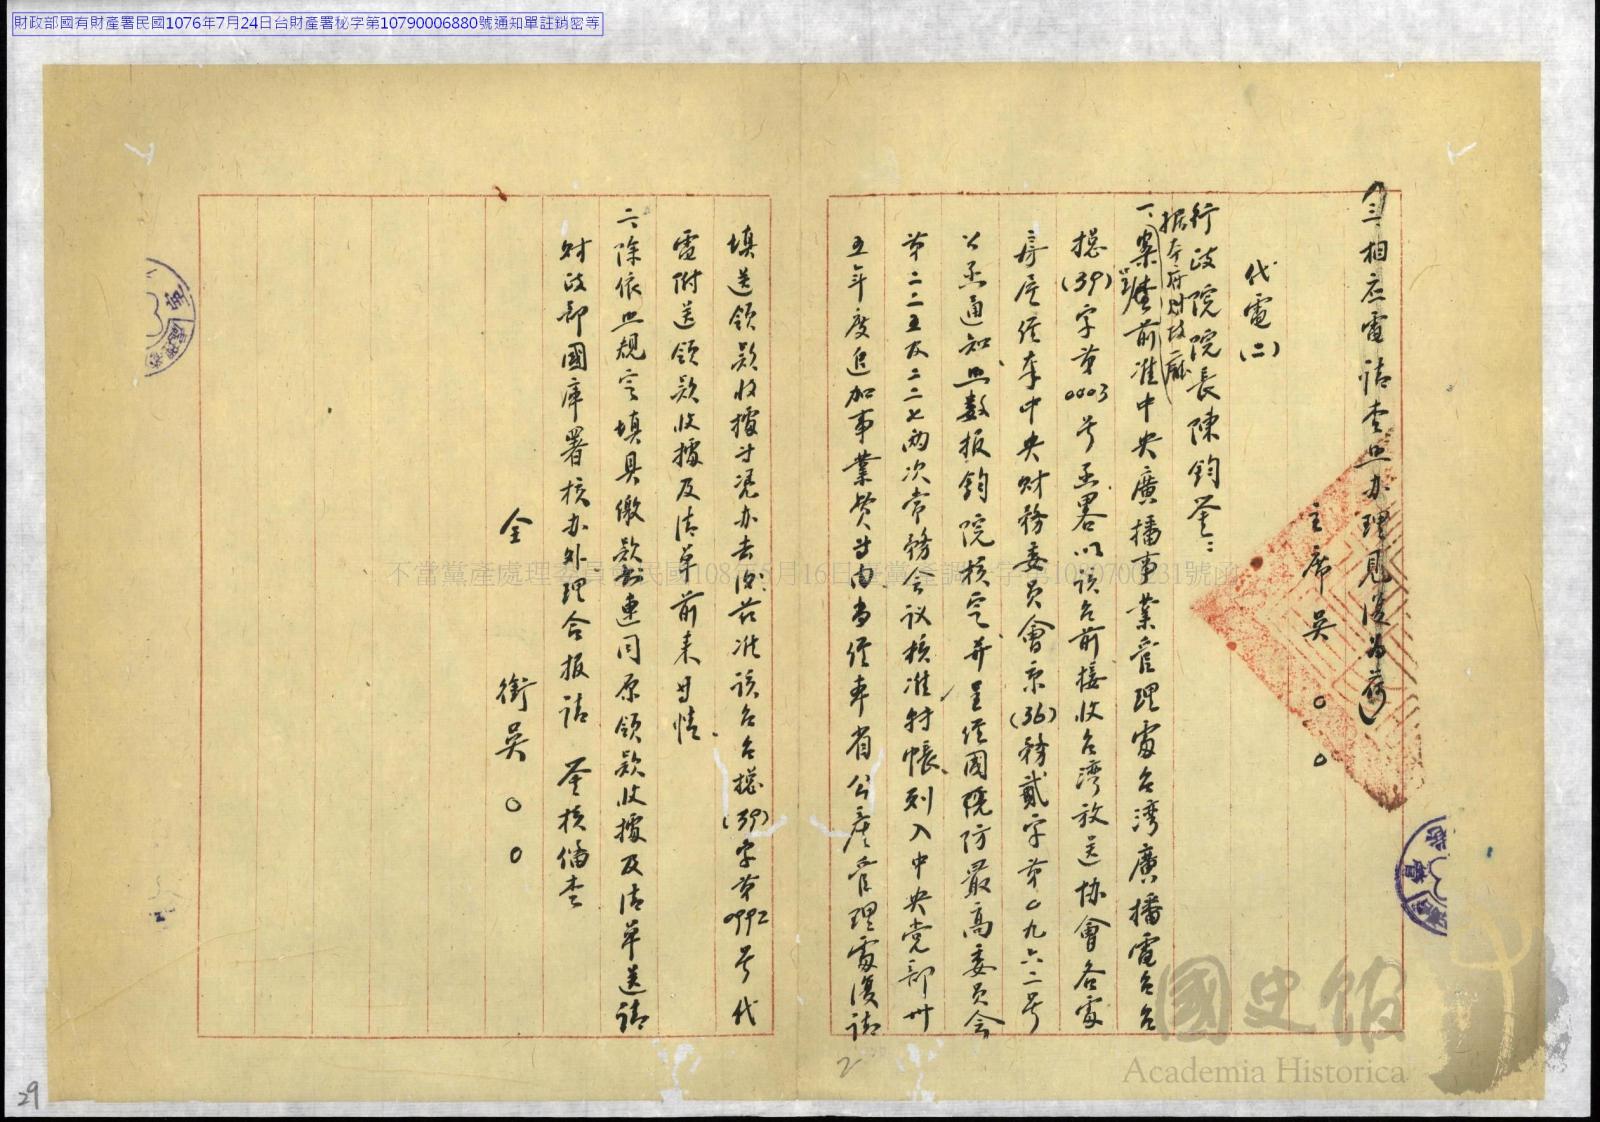 財政部國有財產署民國1076年7月24日台財產署秘字第10790006880號通知單註銷密等
三、相应電請查照办理見復为荷
主席吳○○
代電(二)
行政院院長陳鈞鉴：
據本府財政廳
一、案准前准中央廣播事業管理處台湾廣播電台台
總(39)字第0003号函畧以該台前接收台湾放送協會各處
房屋經奉中央財務委員會京(36)務貳字第0九六二号
公函通知照数报鈞院核定并呈經國防最高委員会
第二二五及二二七兩次常務会议核准转帳列入中央党部卅
五年度追加事業費等由當經本省公產管理處復請
填送領款收據等憑办去後茲准該台台總(39)字第0992号代
電附送領款收據及清单前来等情
二、除依照規定填具繳款書連同原領款收據及清单送請
財政部國庫署核办外理合报請 鉴核備查
全 銜吳○○
不當黨產處理委員會民國108年5月16日臺黨產調二字第1080700231號函
國史館
Academia Historica
2
29